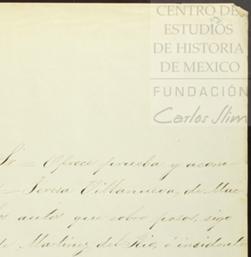 CENTRO DE
ESTUDIOS
DE HISTORIA
DE MEXICO
FUNDACIÓN
Carlos Slim
Ofrece prueba y acom
Teresa Villanueva, de Mac
los autos que sobre pesos, sigo
Martinez del Rio, ó incidente